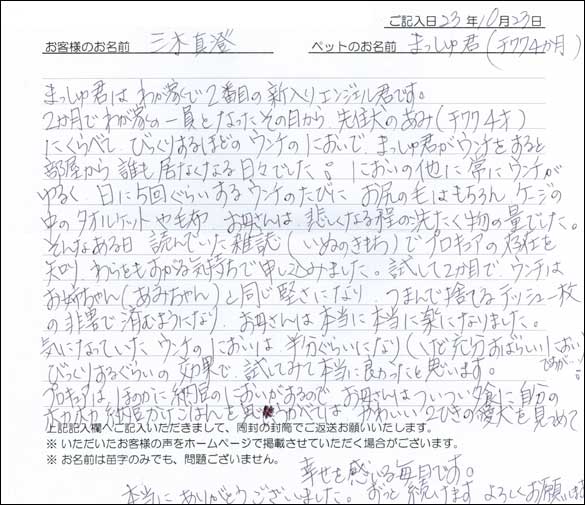 ご記入日 23年10月23日
お客様のお名前 三木真澄 ペットのお名前 まっしゅ君(チワワ4か月)
まっしゅ君は わが家で2番目の新入りエンジェル君です。
2か月でわが家の一員となったその日から 先住犬のあみ(チワワ4才)
にくらべて びっくりするほどのウンチのにおいで、まっしゅ君がウンチをすると
部屋から誰も居なくなる日々でした。 においの他に常にウンチが
ゆるく 日に5回ぐらいするウンチのたびに お尻の毛はもちろん ケージの
中のタオルケットや毛布 お母さんは 悲しくなる程の洗たく物の量でした。
そんなある日 読んでいた雑誌(いぬのきもち)でプロキュアの存在を
知り わらをもすがる気持ちで申し込みました。試して2か月で、ウンチは
お姉ちゃん(あみちゃん)と同じ堅さになり、つまんで捨てるテッシュ一枚
の で済むようになり お母さんは本当に本当に楽になりました。
気になっていた ウンチのにおいは 半分ぐらいになり(いえ充分すばらしい におい
ですが…
びっくりするぐらいの効果で、試してみて本当に良かったと思います。
プロキュアは ほのかに納豆のにおいがあるので お母さんは ついつい夕食に自分の
ホカホカ納豆かけごはんを思いうかべては かわいい2ひきの愛犬を見つめて
上記記入欄へご記入いただきまして、同封の封筒でご返送お願いいたします。
※ いただいたお客様の声をホームページで掲載させていただく場合がございます。
※ お名前は苗字のみでも、問題ございません。
幸せを感じる毎日です。
本当にありがとうございました。ずっと続けます よろしくお願い